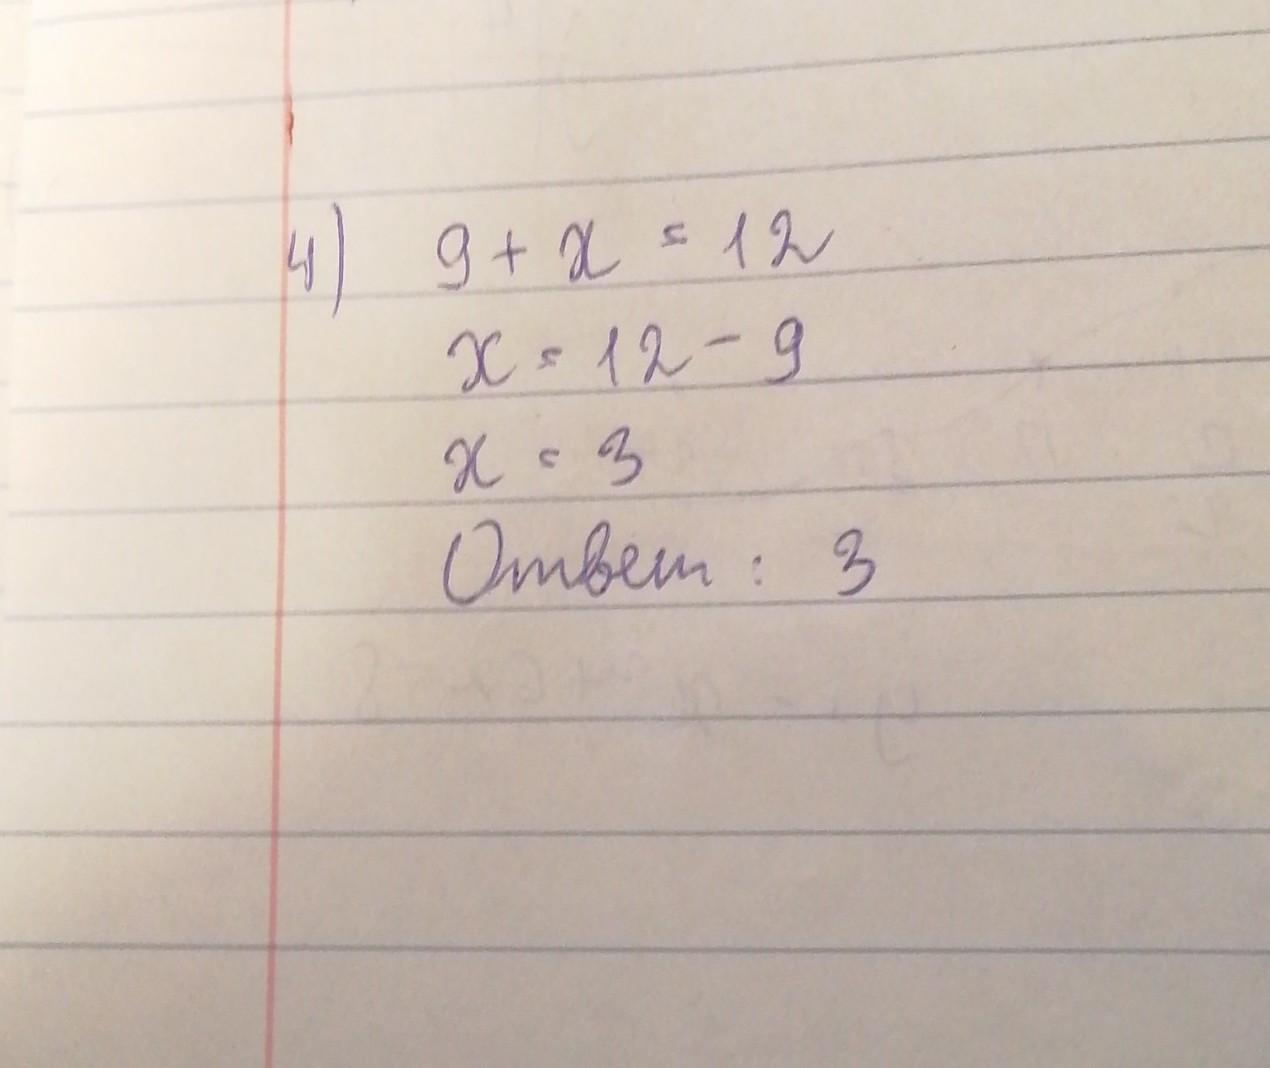 4) 9 + x = 12
x = 12 - 9
x = 3
Ответ : 3